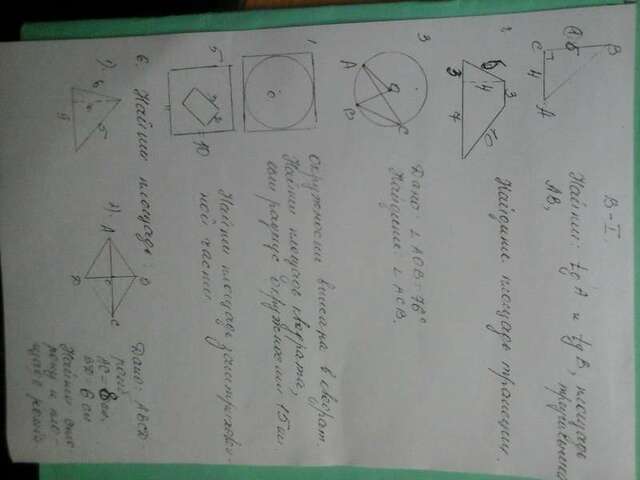 В-I.
B
1. 5
C 4 A
Найти: tg A и tg B, площадь
треугольника
AB,
2
3
5 4 10
3 7
Найдите площадь трапеции.
3
O C
A B
Дано: ∠AOB = 76°
Найдите: ∠ACB.
O
окружность вписана в квадрат.
Найти площадь квадрата,
если радиус окружности 15 см
5
10
Найти площадь заштрихован-
ной части
6. Найти площадь
1). 6 5
9
2). A C
D
Дано: ABCD-
ромб
AC = 8 см.
BD = 6 см
Найти сто
рону и пло-
щадь ромба.